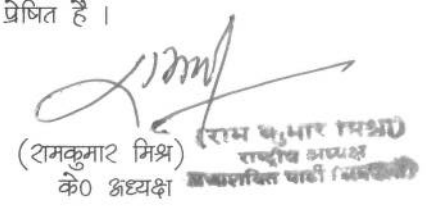 प्रेषित है ।
(रामकुमार मिश्र)
के0 अध्यक्ष
(राम कुमार मिश्रा)
राष्ट्रीय अध्यक्ष
पार्टी